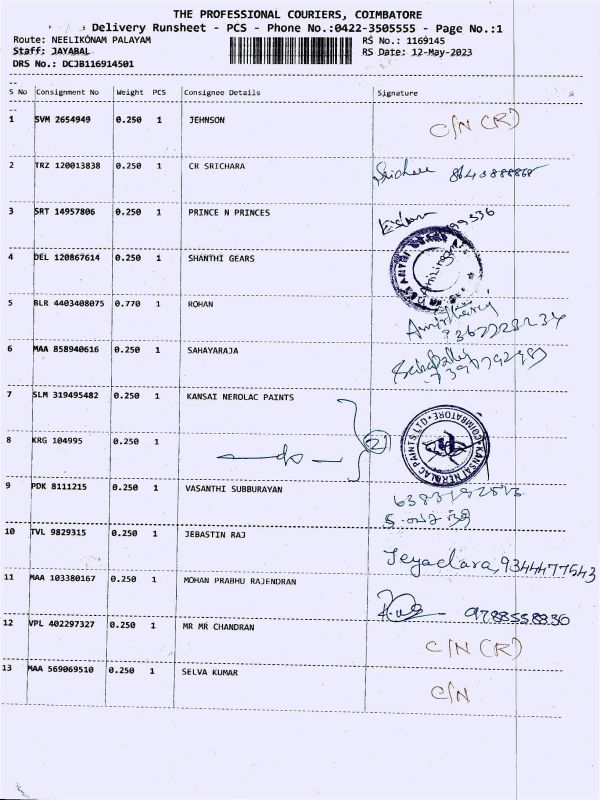 THE PROFESSIONAL COURIERS, COIMBATORE
Delivery Runsheet - PCS - Phone No.:0422-3505555 - Page No.:1
Route: NEELIKONAM PALAYAM
RS No.: 1169145
Staff: JAYABAL
RS Date: 12-May-2023
DRS No.: DCJB116914501
S No Consignment No Weight PCS Consignee Details Signature
1 SVM 2654949 0.250 1 JEHNSON C/N (R)
2 TRZ 120013838 0.250 1 CR SRICHARA
3 SRT 14957806 0.250 1 PRINCE N PRINCES
4 DEL 120867614 0.250 1 SHANTHI GEARS
5 BLR 4403408075 0.770 1 ROHAN
6 MAA 858940616 0.250 1 SAHAYARAJA
7 SLM 319495482 0.250 1 KANSAI NEROLAC PAINTS
KANSAI NEROLAC PAINTS LTD. COIMBATORE
8 KRG 104995 0.250 1 do 2
9 PDK 8111215 0.250 1 VASANTHI SUBBURAYAN
10 TVL 9829315 0.250 1 JEBASTIN RAJ Jeyaclara, 9344477543
11 MAA 103380167 0.250 1 MOHAN PRABHU RAJENDRAN 9788558830
12 VPL 402297327 0.250 1 MR MR CHANDRAN C/N (R)
13 MAA 569069510 0.250 1 SELVA KUMAR C/N